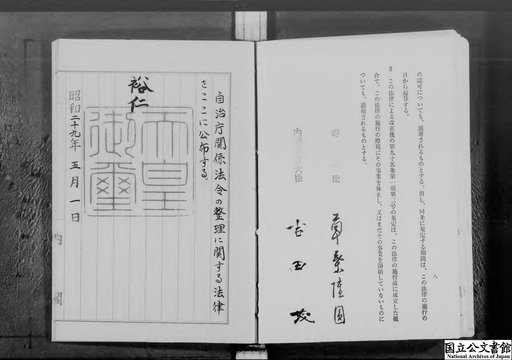 八
の認可についても、適用されるものとする。但し、同条に規定する期間は、この法律の施行の
日から起算する。
3 この法律による改正後の第九十五条第一項第二号の規定は、この法律の施行前に成立した組
合で、この法律の施行の際現にその事業を休止し、又はまだその事業を開始していないものに
ついても、適用されるものとする。
臣 草葉隆圓
内閣総理大臣 吉田茂
自治庁関係法令の整理に関する法律
をここに公布する。
裕仁
天皇
御璽
昭和二十九年五月一日
内閣
国立公文書館
National Archives of Japan